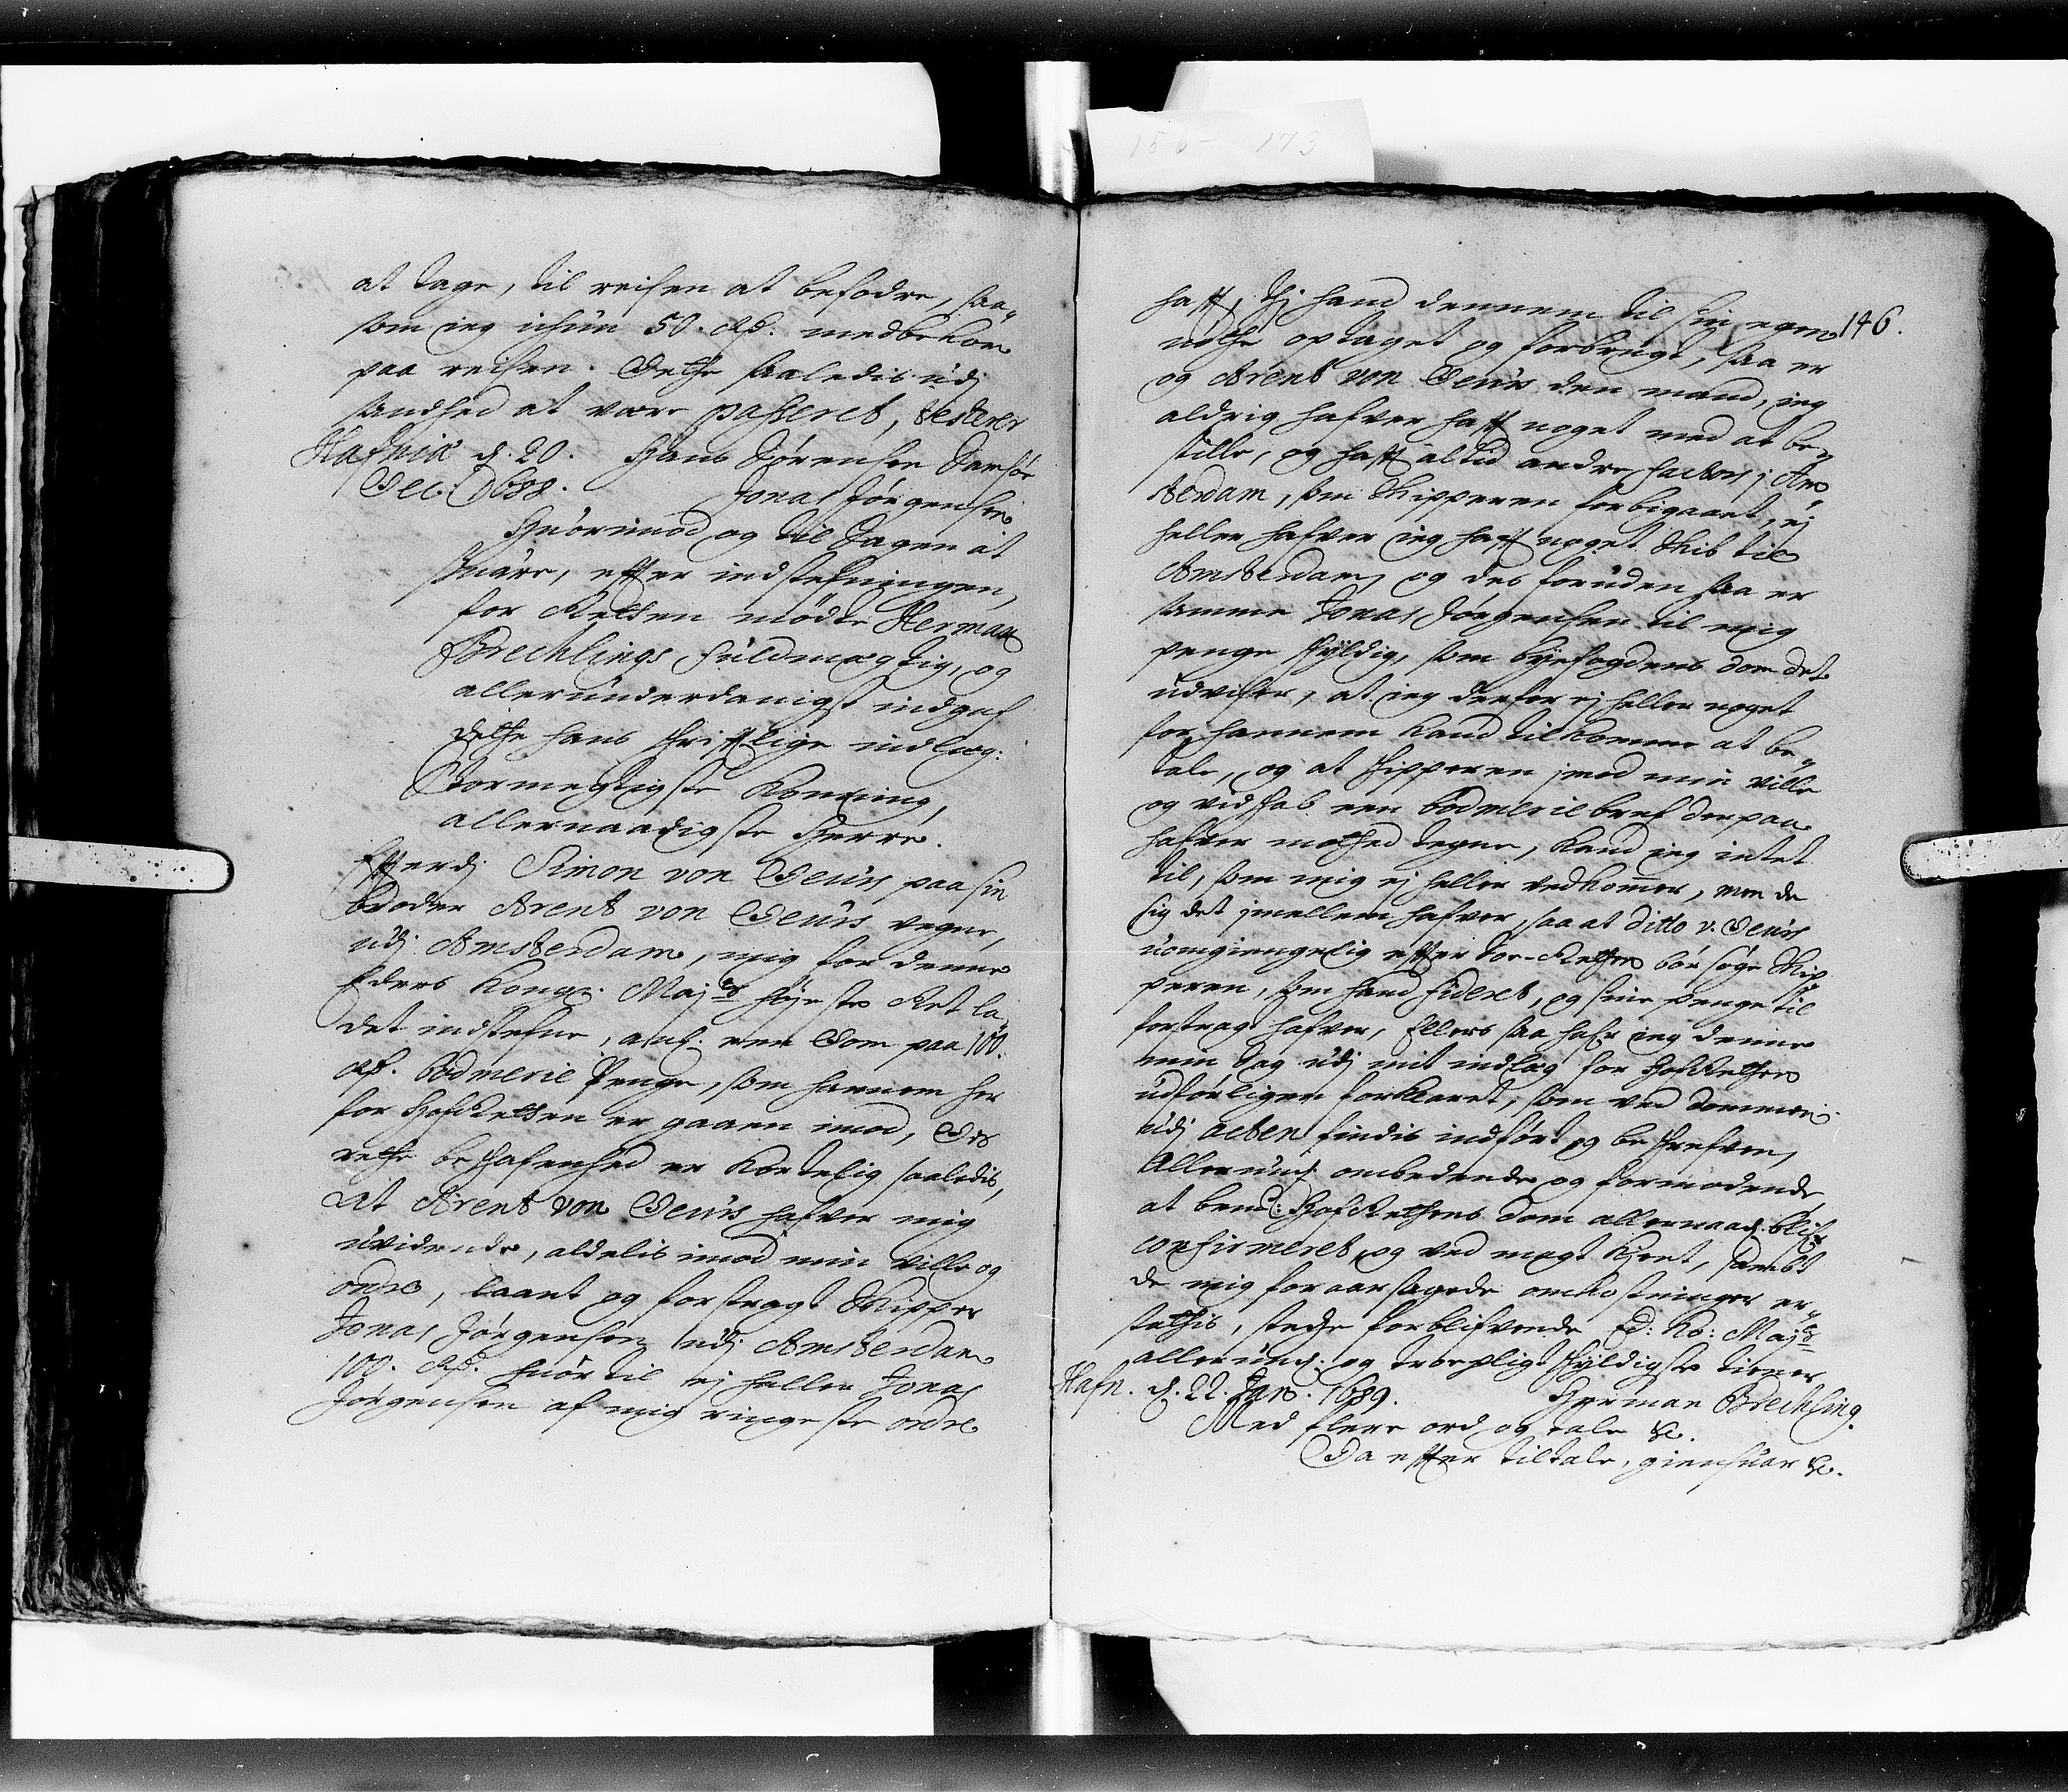 156 - 173
at tage, til reisen at befodre, saa„
som ieg ichun 50. Rd. medbekom
paa reisen. Dette saaledis udj
sandhed at være passeret, testerer
Hafniæ d. 20. Hans Sørensen
Dec. 1688. Jonas Jørgensen
Huorimod og til sagen at
suare, efter indstefningen,
for Retten mødte Herman
Brechlings fuldmegtig, og
allerunderdanigst indgaf
dette hans skrifftlige indleg:
Stormegtigste Konning,
allernaadigste Herre.
Efterdj Simon von Deurs paa sin
broder Arent von Deurs vegne,
udj Amsterdam, mig for denne
Eders Kongl. Maj.ts høyeste Ret la„
det indstefne, anl. een Dom paa 100.
Rd. Bodmerie Penge, som hannem her
for HofRetten er gaaen imod, Des
rette beskafenhed er kortelig saaledis,
At Arent von Deurs hafver mig
uvidende, aldelis imod min villie og
ordre, laant og forstragt Skipper
Jonas Jørgensen udj Amsterdam
100. Rd. huor til ej heller Jonas
Jørgensen af mig ringeste ordre
146.
haft, thj hand dennem til sin egen
nøtte optaget og forbrugt, saa er
og Arent von Deurs den mand, ieg
aldrig hafver haft noget med at be„
stille, og haft altid andre factors j Am„
sterdam, som Skipperen forbigaaet, ej
heller hafver ieg haft noget Skib til
Amsterdam, og des foruden saa er
samme Jonas Jørgensen til mig
penge skyldig, som byefogdens dom det
udviser, at ieg derfor ej heller noget
for hannem kand tilkomme at be„
tale, og at skipperen imod min villie
og vidskab een bodmerie bref derpaa
hafver mottet tegne, kand ieg intet
til, som mig ej heller vedkommer, men de
sig det imellem hafver, saa at ditto v. Deurs
uomgiengelig efter Søe-Retten bør søge Skip„
peren, som hand fideret, og sine penge til
forstragt hafver, Ellers saa hafr ieg denne
min sag udj mit indleg for HofRetten
udførligen forklaret, som ved dommen
udj acten findis indført og beskrefven,
Allerund. ombedende og formodende,
at bem.te HofRettens dom allernaad. blifr
confirmeret, og ved magt kient, sambt
de mig foraarsagede omkostninger er„
stattis, stedse forblifvende Ed: Ko: Maj.ts
allerund. og troepligt skyldigste tiener
Hafn. d. 22. Jan. 1689. Herman Brechling.
Med flere ord og tale &c.
Da efter tiltale, giensuar &c.